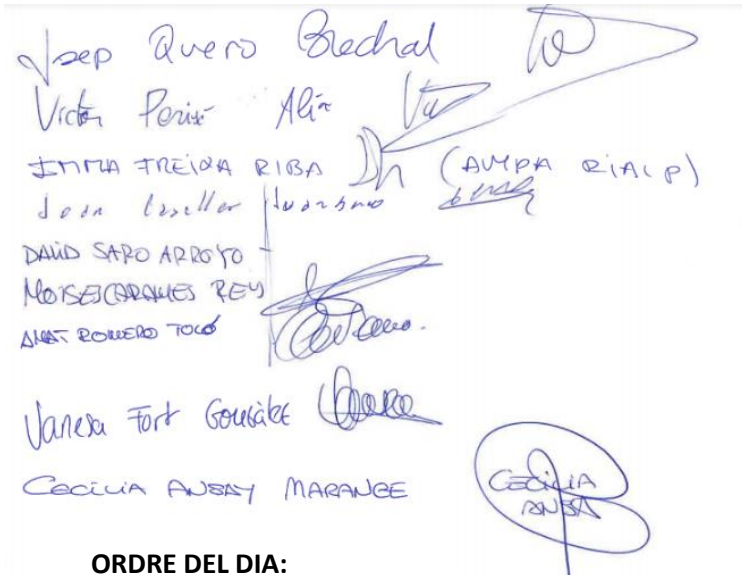 Josep Quero Brechal
Victor Perisé Alín
IMMA FREIXA RIBA (AMPA RIALP)
Joan
DAVID SARO ARROYO
MOISES CARAMES REY
AMAT ROMERO TOLO
Vanesa Fort González
CECILIA ANSAY MARANGE CECILIA ANSA
ORDRE DEL DIA: